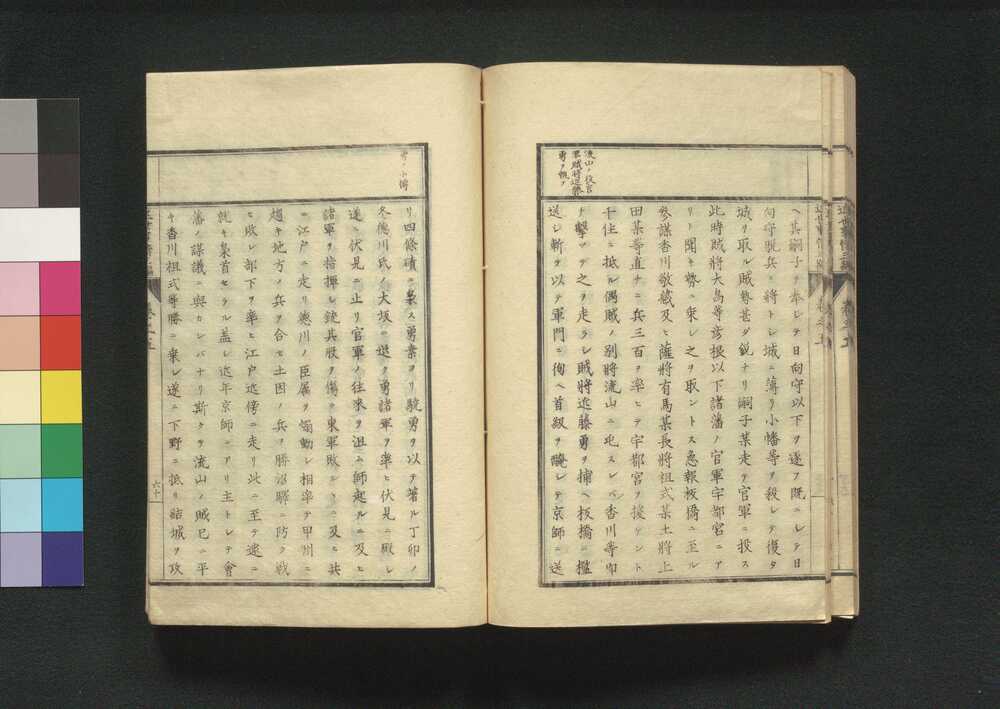 流山ノ役官
軍賊将近藤
勇ヲ執フ
ヘ其嗣子ヲ奉シテ日向守以下ヲ逐フ既ニシテ日
向守脱兵ニ將トシ城ニ薄リ小幡等ヲ殺シテ復タ
城ヲ取ル賊勢甚タ鋭ナリ嗣子某走テ官軍ニ投ス
此時賊將大鳥等彦根以下諸藩ノ官軍宇都宮ニア
リト聞キ勢ニ乘シ之ヲ取ントス急報板橋ニ至ル
參謀香川敬藏及ヒ薩將有馬某長將祖式某土將上
田某等直チニ兵三百ヲ率ヒテ宇都宮ヲ援ケント
千住ニ抵ル偶賊ノ別將流山ニ屯スレバ香川等即
チ擊テ之ヲ走ラシ賊將近藤勇ヲ捕ヘ板橋ニ檻
送シ斬テ以テ軍門ニ徇ヘ首級ヲ醃シテ京師ニ送
勇ノ小傳
リ四條磧ニ梟ス勇業ヨリ驍勇ヲ以テ著ル丁卯ノ
冬德川氏ノ大坂ニ退ク勇諸軍ヲ率ヒ伏見ニ殿シ
遂ニ伏見ニ止リ官軍ノ往來ヲ沮ム師起ルニ及ヒ
諸軍ヲ指揮シ銃其股ヲ傷ク東軍敗シトニ及ヒ共
ニ江戸ニ走リ德川ノ臣屬ヲ煽動シ相率テ甲州ニ
趨キ地方ノ兵ヲ合セ土因ノ兵ヲ勝沼驛ニ防ク戰
ヒ敗レ部下ヲ率ヒ江戸近傍ニ走リ此ニ至テ逮ニ
就キ梟首セラル蓋シ近年京師ニアリ主トシテ會
藩ノ謀議ニ與カレバナリ斯クテ流山ノ賊已ニ平
キ香川祖式等勝ニ乘シ遂ニ下野ニ抵リ結城ヲ攻
六十